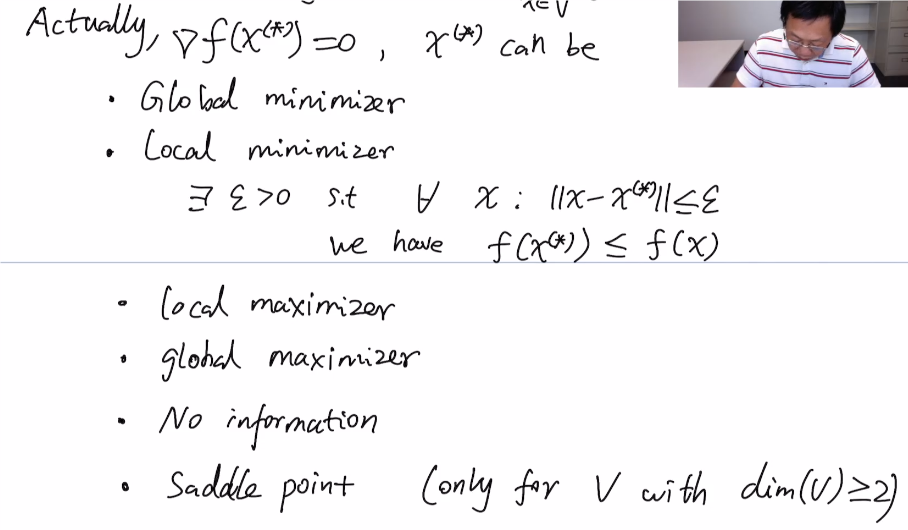 x∈V
Actually, ∇f(x^(*)) = 0 , x^(*) can be
• Global minimizer
• Local minimizer
∃ ε>0 s.t ∀ x : ||x-x^(*)||≤ε
we have f(x^(*)) ≤ f(x)
• local maximizer
• global maximizer
• No information
• Saddle point (only for V with dim(V)≥2)